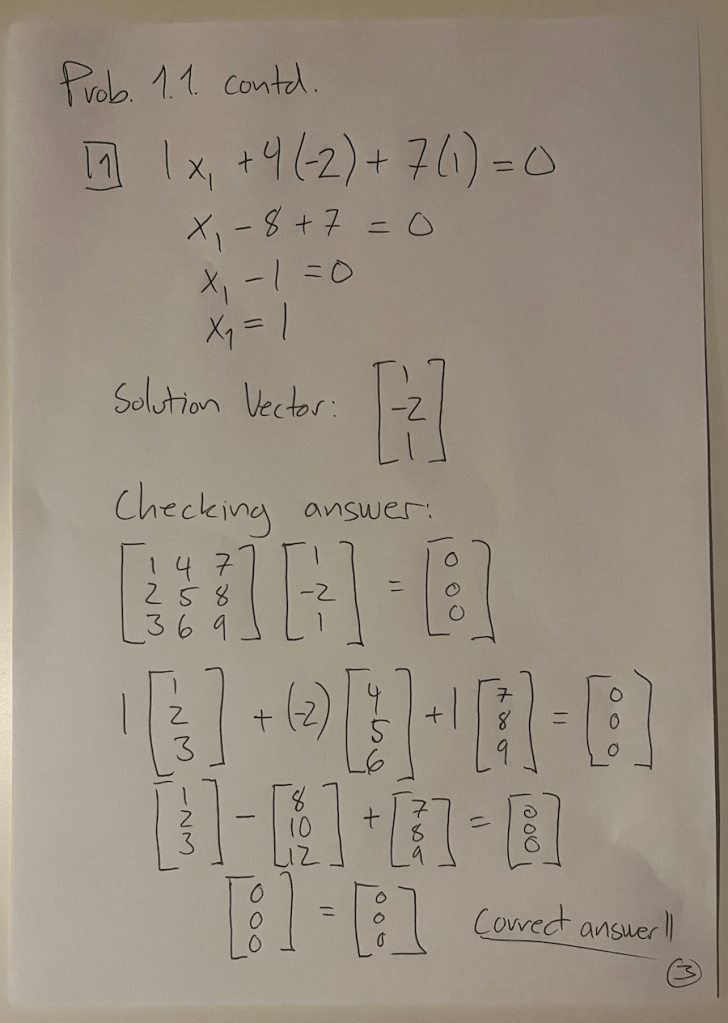 Prob. 1.1. contd.
[1] 1x₁ + 4(-2) + 7(1) = 0
x₁ - 8 + 7 = 0
x₁ - 1 = 0
x₁ = 1
Solution Vector: [1 -2 1]
Checking answer:
[1 4 7; 2 5 8; 3 6 9] [1 -2 1] = [0 0 0]
1 [1 2 3] + (-2) [4 5 6] + 1 [7 8 9] = [0 0 0]
[1 2 3] - [8 10 12] + [7 8 9] = [0 0 0]
[0 0 0] = [0 0 0] Correct answer!!
3